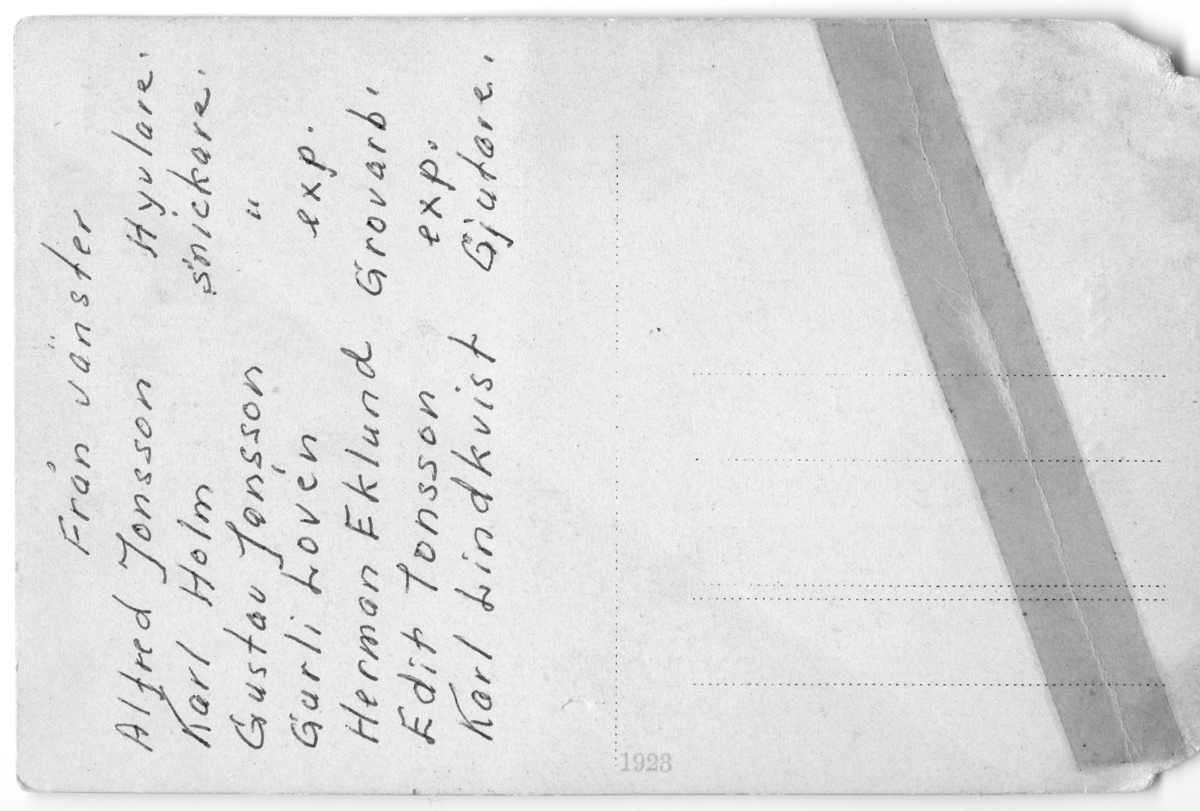 Från vänster
Alfred Jonsson Hyvlare.
Karl Holm snickare.
Gustav Jonsson "
Gurli Lovén exp.
Herman Eklund Grovarb.
Edit Jonsson exp.
Karl Lindkvist Gjutare.
1923